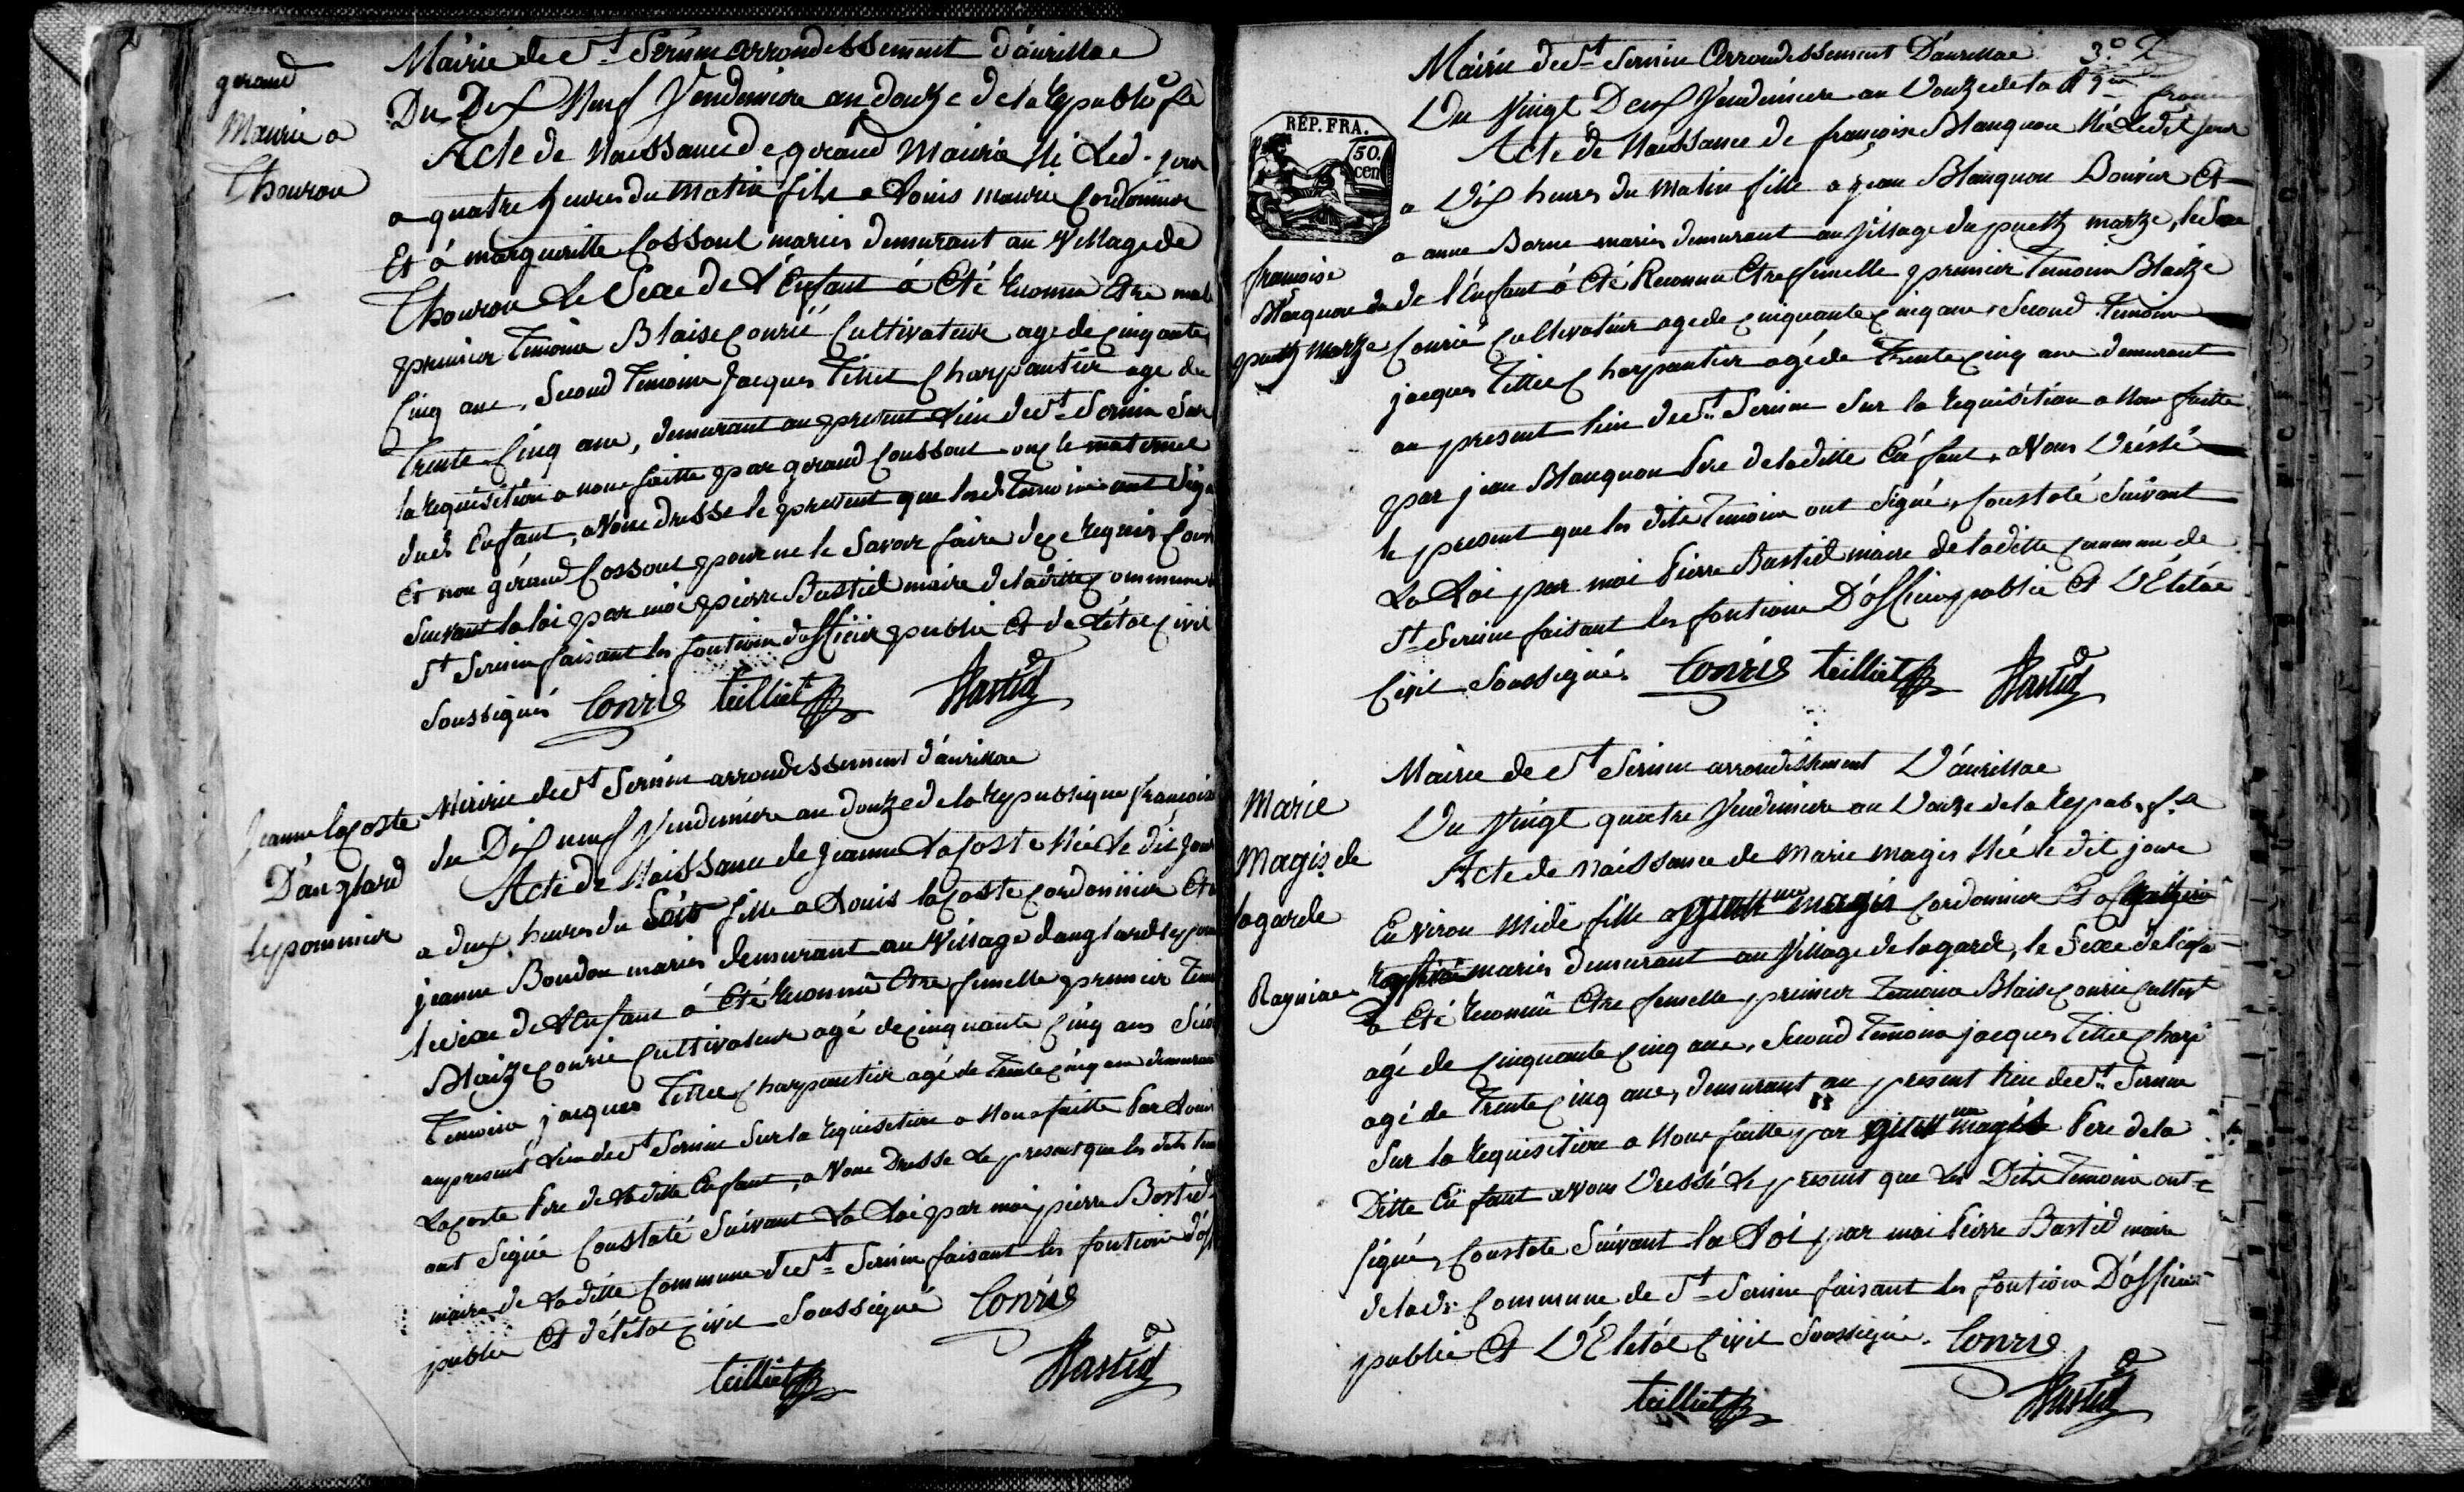 gerand
Maurie a
Thouron
Mairie de St Sernin arrondissement d'aurillac
Du Dix Neuf Vendemiere an douze de la Republiq fse
Acte de Naissance de gerand Maurie Né Led. jour
a quatre heures du matin fils a Louis maurie Cordonnier
Et á margueritte Cossoul mariés demurant au Village de
Thouron Le Sexe de L'Enfant á Eté Reconnu Etre male
premier Temoin Blaise Courié Cultivateur agé de Cinquante
Cinq ans, Second Temoin Jacques Tillet Charpantier age de
Trente Cinq ans, demurant au present Lieu de St Sernin Sur
la Requisition a nous faitte par gerand Coussoul oncle maternel
dud. Enfant, avons dresse le present que lesd. Temoins ont Signé
Et non gérand Cossoul pour ne le Savoir faire de ce Requis Const
Suivant la loi par moi pierre Bastid maire de laditte Commune
St Sernin faisant les fontions d'officier public Et de Létat Civil
Soussignés Courie teilliet Bastid
Jeanne lacoste
D'anglard
lepommier
Mairie de St Sernin arrondissement d'aurillac
du Dix neuf Vendemiere an douze de la Republique francoise
Acte de Naissance de Jeanne Lacoste Née Le dit jour
a deux heures du Soir fille a Louis lacoste Cordonnier Et a
jeanne Boudou mariés demurant au Village danglard lepom
le sexe de L'Enfant á Eté Reconnu Etre femelle premier Tem
Blaize Courie Cultivateur agé de Cinquante Cinq ans Second
Temoin jacques Tillet Charpantier agé de Trente Cinq ans demurant
au present Lieu de St Sernin Sur la Requisition a Nous faitte Par Louis
Lacoste Pere de Laditte Enfant, avons Dresse Le present que les dits tem
ont Signé Constaté Suivant La Loi par moi pierre Bastid
maire de Laditte Commune de St Sernin faisant les fontions d'off
public Et de l'état Civil Soussigné Courie
teilliet Bastid
3.e
Mairie de St Sernin Arrondissement D'aurillac
REP. FRA.
50.
cen
francoise
Blanquon du
puetz martze
Du Vingt Deux Vendemiere an Douze de la
Acte de Naissance de francoise Blanquon Née Ledit jour
a Dix heures du matin fille a jean Blanquon Bouvier Et
a anne Borne mariés demurant au Village du puetz martze, le Sexe
de l'Enfant á Eté Reconnu Etre femelle premier Temoin Blaize
Courié Cultivateur age de Cinquante Cinq ans Second Temoin
jacques Tillet Charpantier agé de Trente Cinq ans demurant
au present lieu de St Sernin Sur la Requisition a Nous faitte
par jean Blanquon Pere de laditte Enfant, avons Dréssé
le present que les dits Temoins ont Signé, Constaté Suivant
La Loi par moi Pierre Bastid maire de laditte Commune de
St Sernin faisant les fontions D'officier public Et D'Elétat
Civil Soussigné. Courie teilliet Bastid
Marie
Magis de
lagarde
Mairie de St Sernin arrondissement D'aurillac
Du Vingt quatre Vendemiere an Douze de la Repub. fse
Acte de Naissance de Marie magis Née le dit jour
Environ Midi fille a guillme magis Cordonnier Et a
mariés demurant au Village de lagarde, le Sexe de l'enfa
á Eté Reconnu Etre femelle premier Temoin Blaise Courie Cultivt
agé de Cinquante Cinq ans, Second Temoin jacques Tillet Charp
agé de Trente Cinq ans, demurant au present lieu de St Sernin
Sur la Requisition a Nous faitte par guillme magis Pere de la
Ditte Enfant avons Dressé Le present que Les Dits Temoins ont
Signé, Constate Suivant la Loi par moi Pierre Bastid maire
de lad. Commune de St Sernin faisant les fontions D'officier
public Et D'Elétat Civil Soussigné. Courie
teilliet Bastid